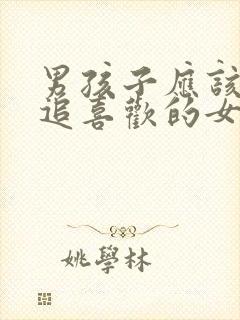 男孩子應該
追喜歡的女
姚學林